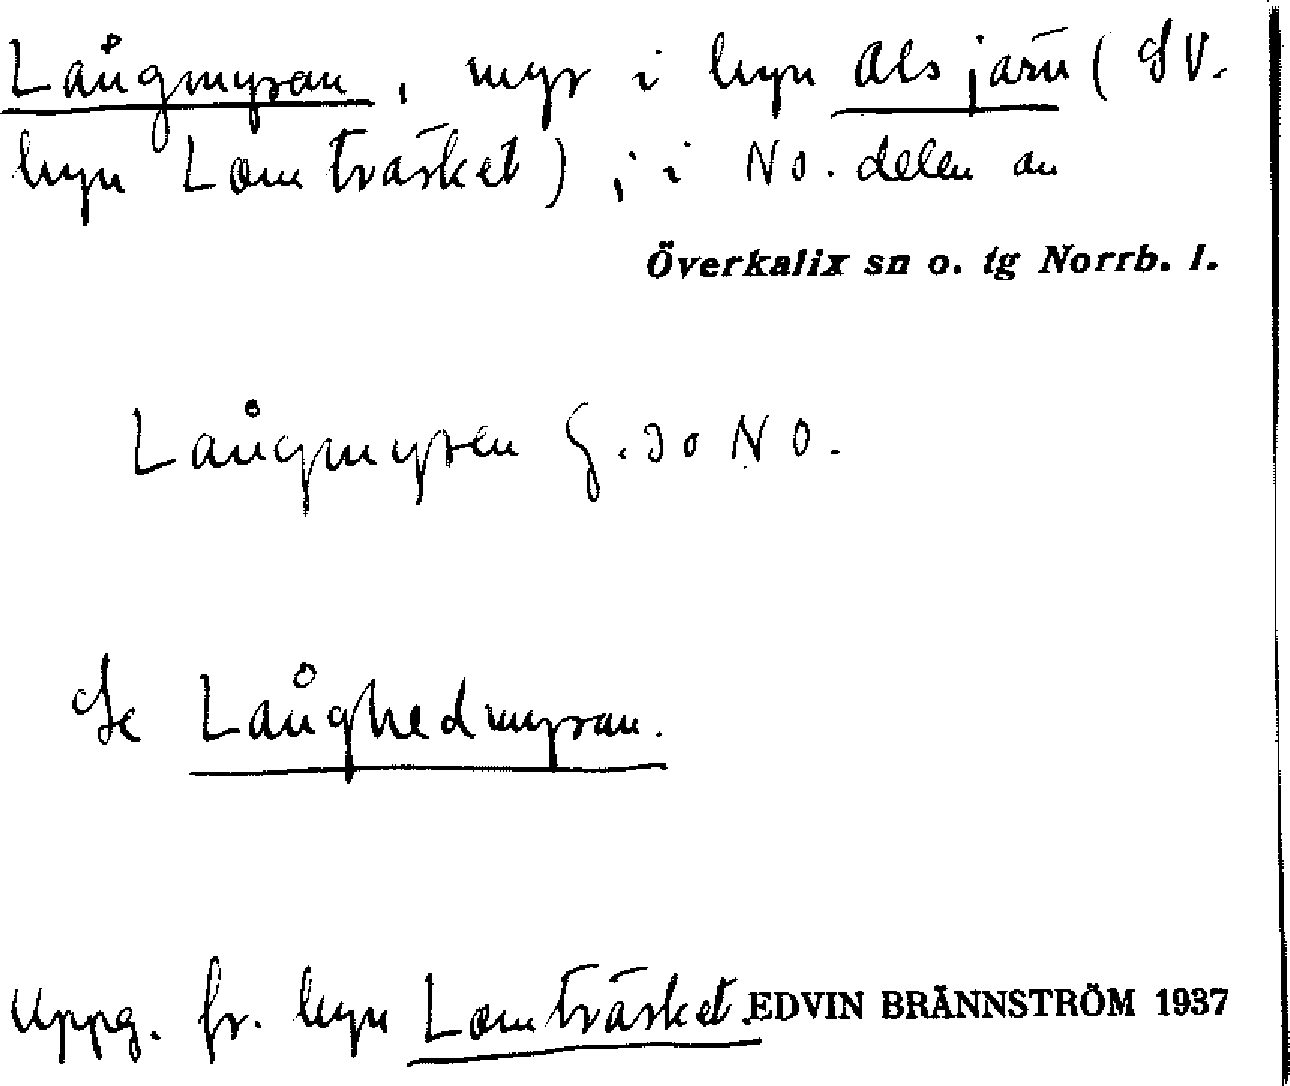 Långmyran, myr i byn Alsjärv (SV.
byn Lomträsket), i NO. delen av
Överkalix sn o. tg Norrb. l.
Långmyren G.30 NO.
Se Långhedmyran.
Uppg. fr. byn Lomträsket. EDVIN BRÄNNSTRÖM 1937